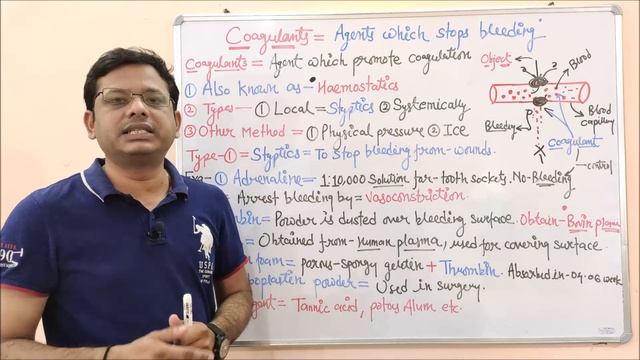 Coagulants = Agents which stops bleeding
Coagulants = Agent which promote coagulation
① Also known as - Haemostatics
② Types - ① Local = Styptics ② Systemically
③ Other Method = ① Physical pressure ② Ice
Type-① = Styptics = To stop bleeding from - wounds.
① Adrenaline = 1:10,000 Solution for - tooth sockets. No-Bleeding
Arrest bleeding by = Vasoconstriction.
bin = Powder is dusted over bleeding surface. Obtain - Bovin plasma
= Obtained from - human plasma, used for covering surface
foam = porous-spongy gelatin + Thrombin. Absorbed in - 04-06 week
boplastin powder = Used in surgery.
gent = Tannic acid, potous Alum etc.
Object
Blood
Bleeding
Blood capillary
Coagulant
control
USPA